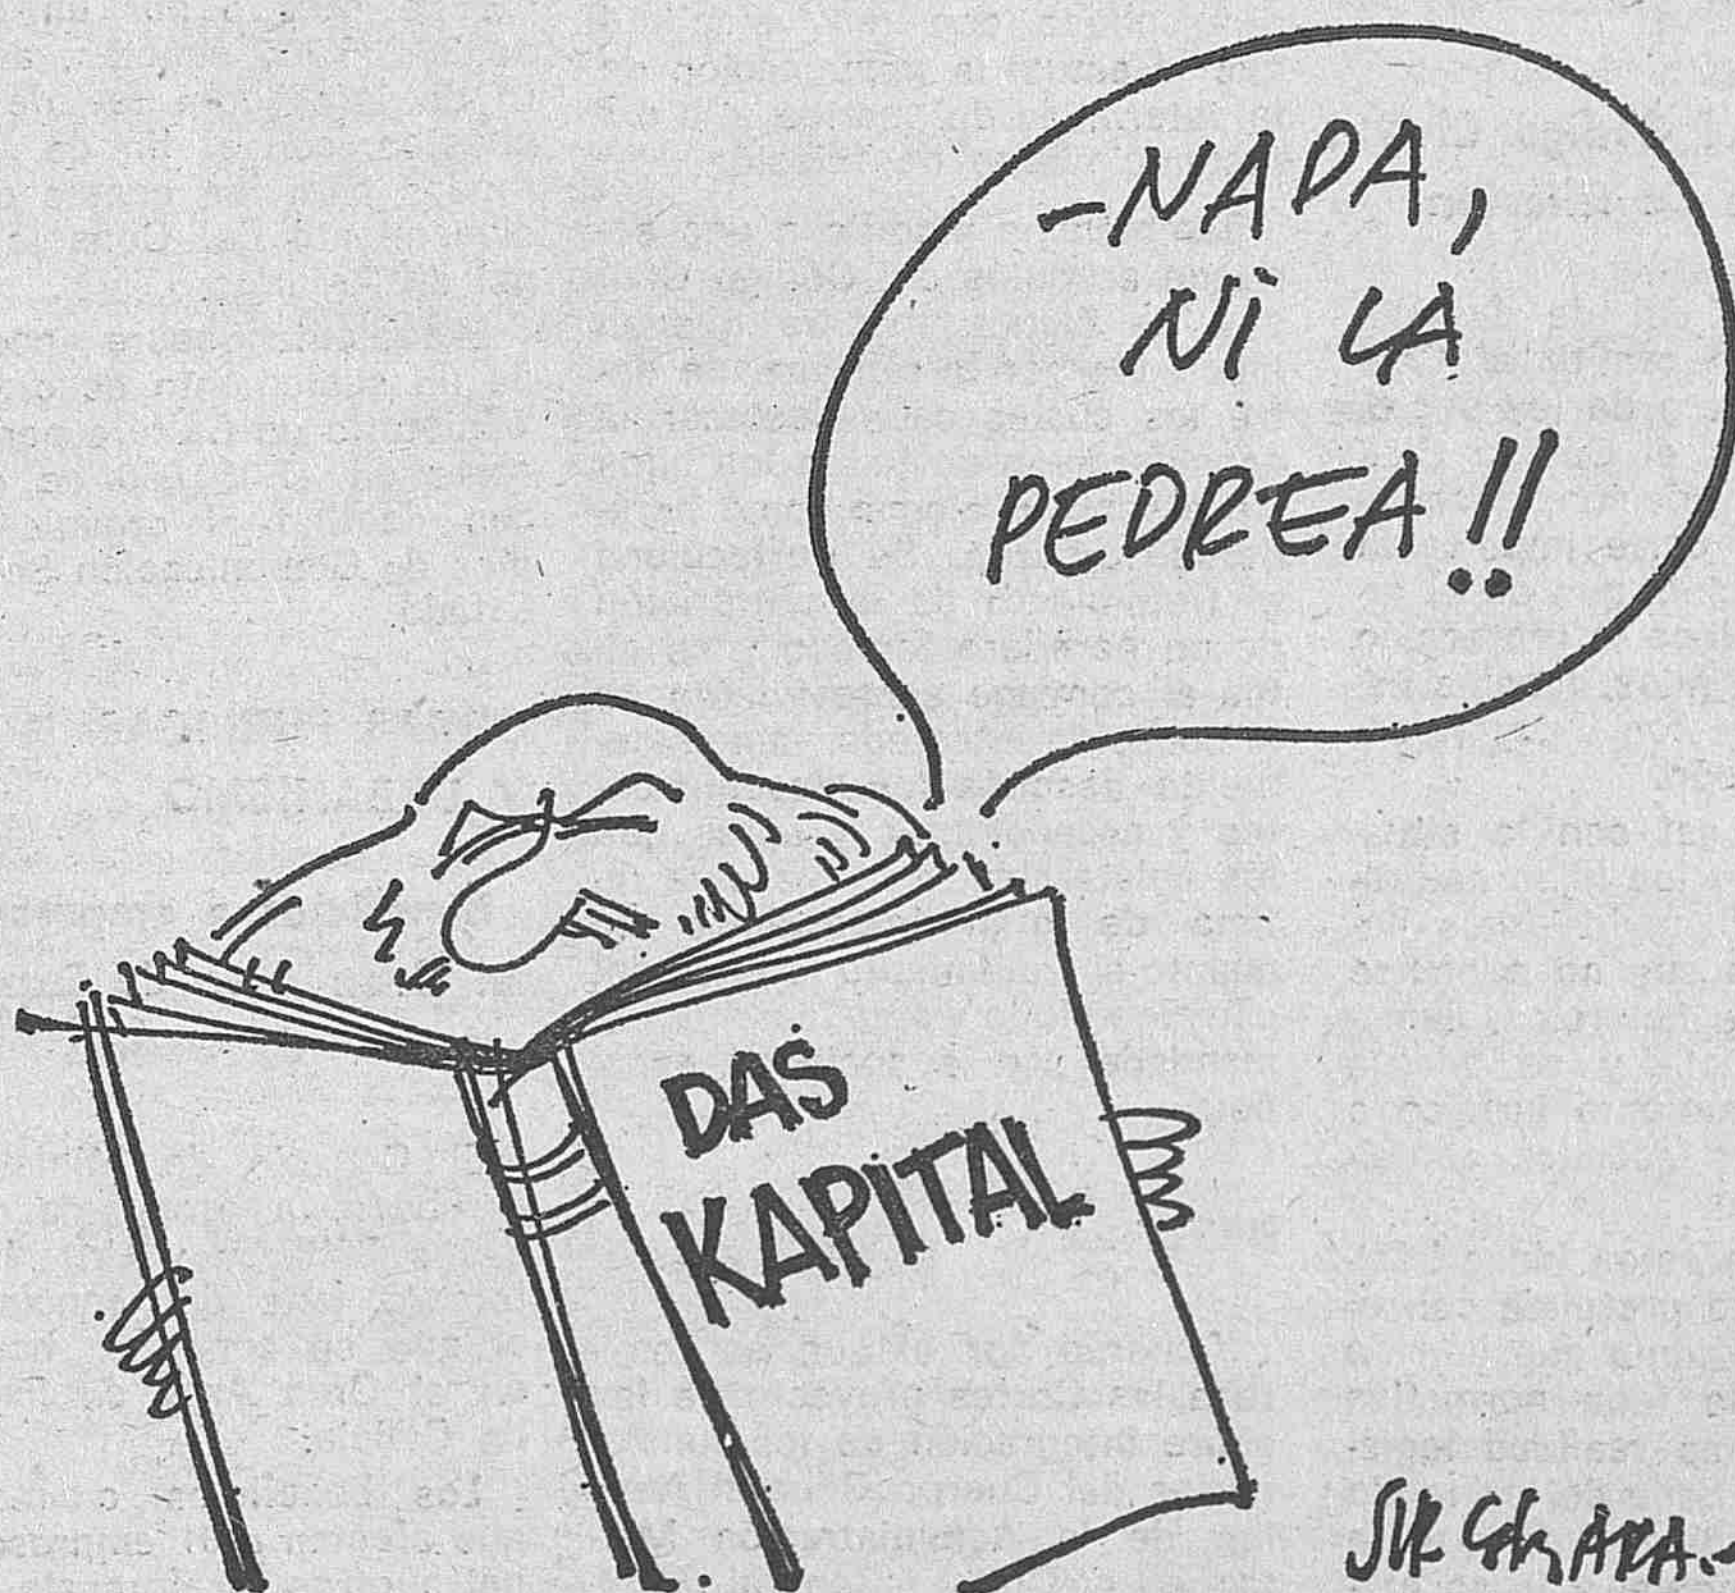 -NADA,
NI LA
PEDREA!!
DAS
KAPITAL
SIR CÁMARA.-